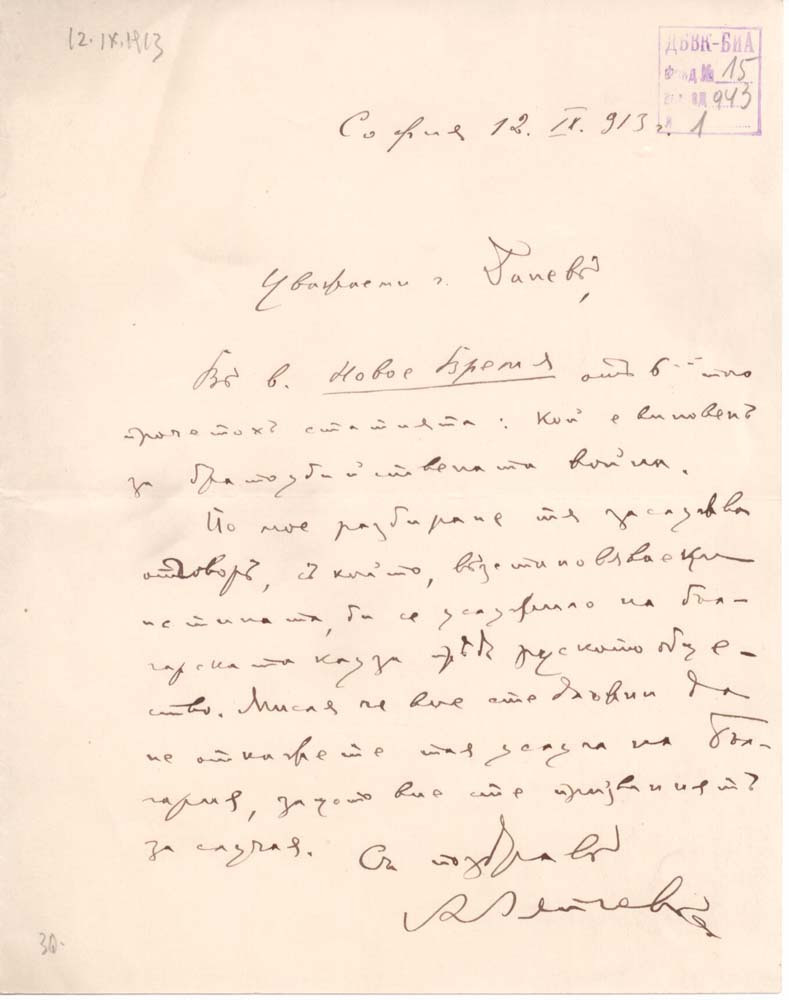 12.IX.1913
ДБВК-БИА
Фонд № 15
943
1
София 12. IX. 913 г.
Уважаеми г. Ганевъ,
Въ в. Новое Время отъ 6-то
прочетохъ статията: Кой е виновенъ
за братоубийствената война.
По мое разбиране тя заслужва
отговоръ, съ който, възстановявайки
истината, би се услужило на бъл-
гарската кауза прѣдъ руското обще-
ство. Мисля че вие сте длъжни да
не откажете тая услуга на Бъл-
гария, защото вие сте призваниятъ
за случая. Съ поздравъ
30.